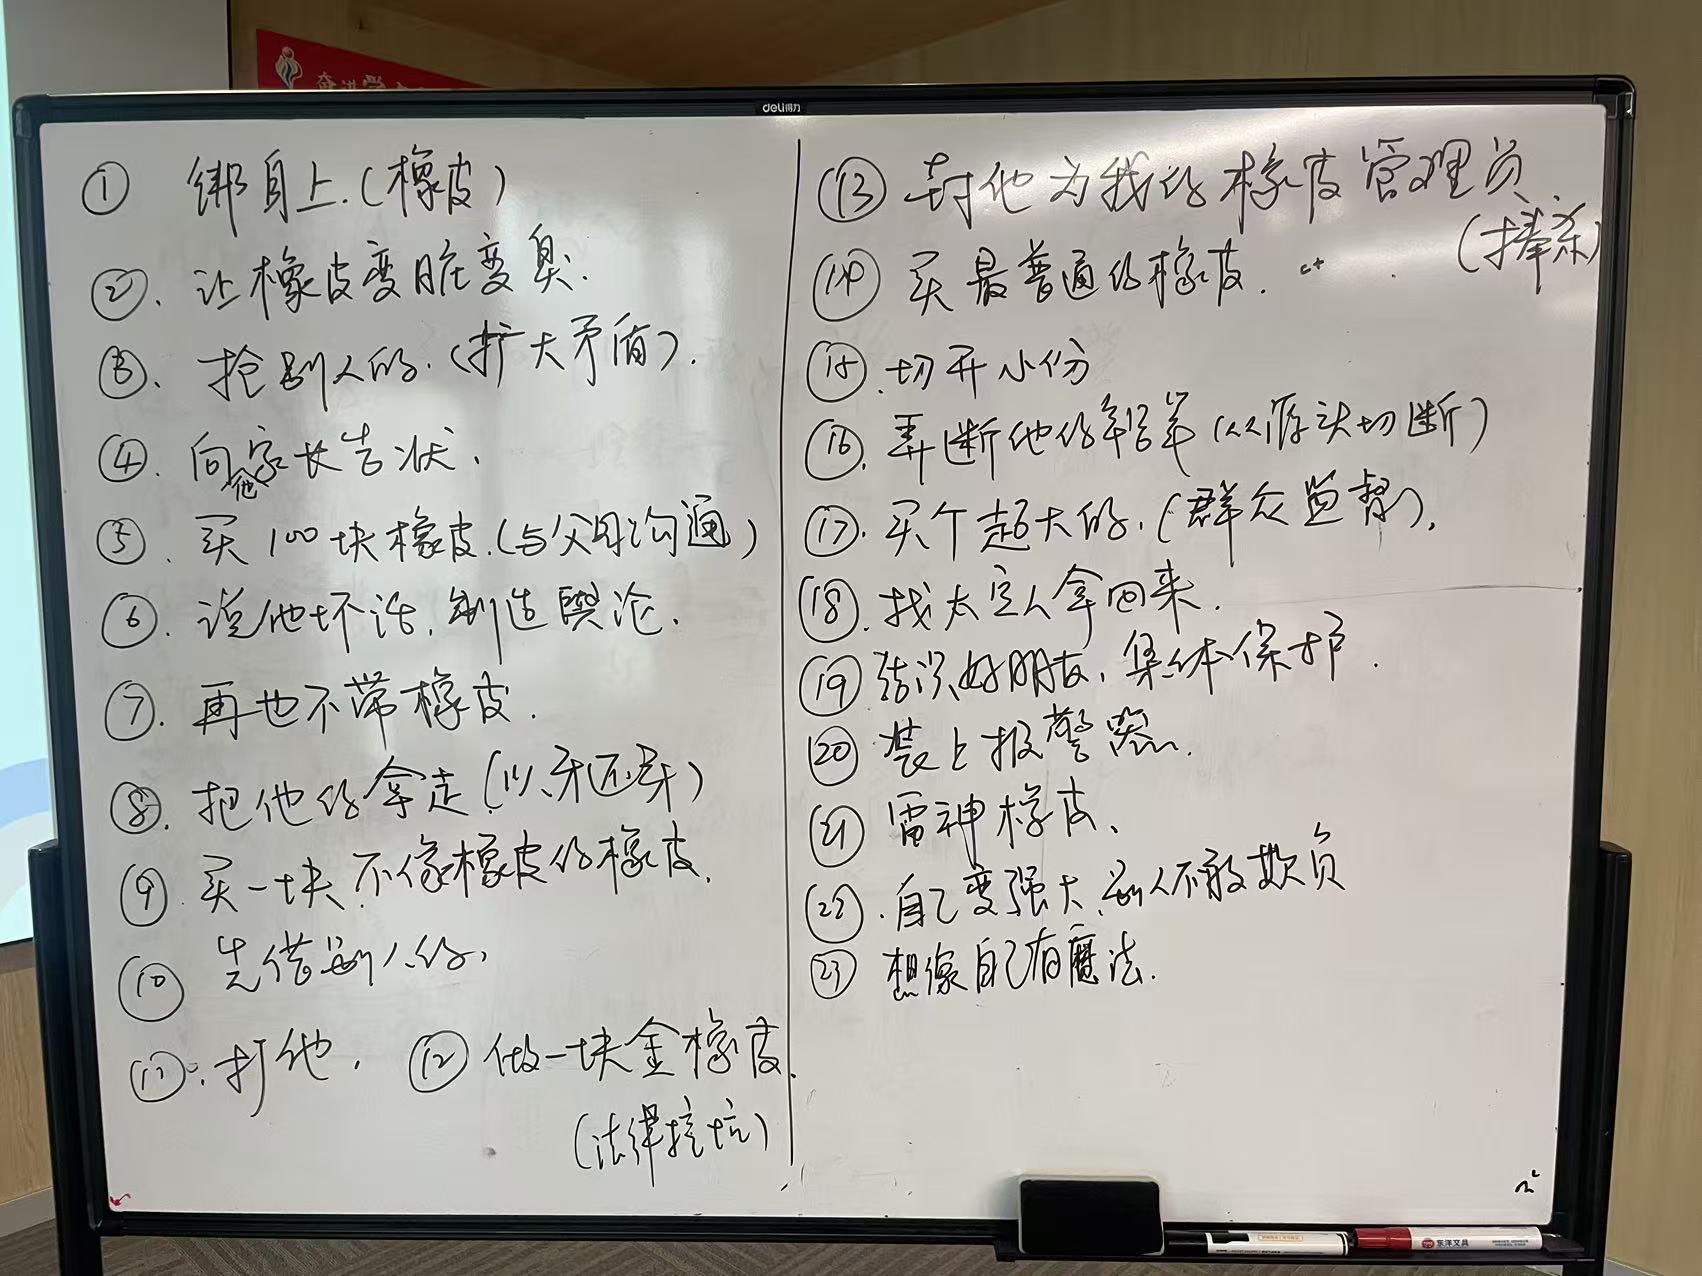 deli得力
① 绑身上.(橡皮)
②. 让橡皮变脏变臭.
③. 抢别人的.(扩大矛盾).
④. 向他家长告状.
⑤. 买100块橡皮.(与父母沟通)
⑥. 说他坏话, 制造舆论.
⑦. 再也不带橡皮.
⑧. 把他的拿走(以牙还牙)
⑨ 买一块不像橡皮的橡皮.
⑩ 先借别人的.
⑪. 打他. ⑫ 做一块金橡皮.
(法律挖坑)
⑬ 封他为我的橡皮管理员.
(捧杀)
⑭ 买最普通的橡皮.
⑮. 切开小份
⑯. 弄断他的铅笔(从源头切断)
⑰. 买个超大的.(群众监督).
⑱. 找大人拿回来.
⑲ 结识好朋友, 集体保护.
⑳ 装上报警器.
㉑ 雷神橡皮.
㉒. 自己变强大, 别人不敢欺负
㉓ 想像自己有魔法.
东洋文具